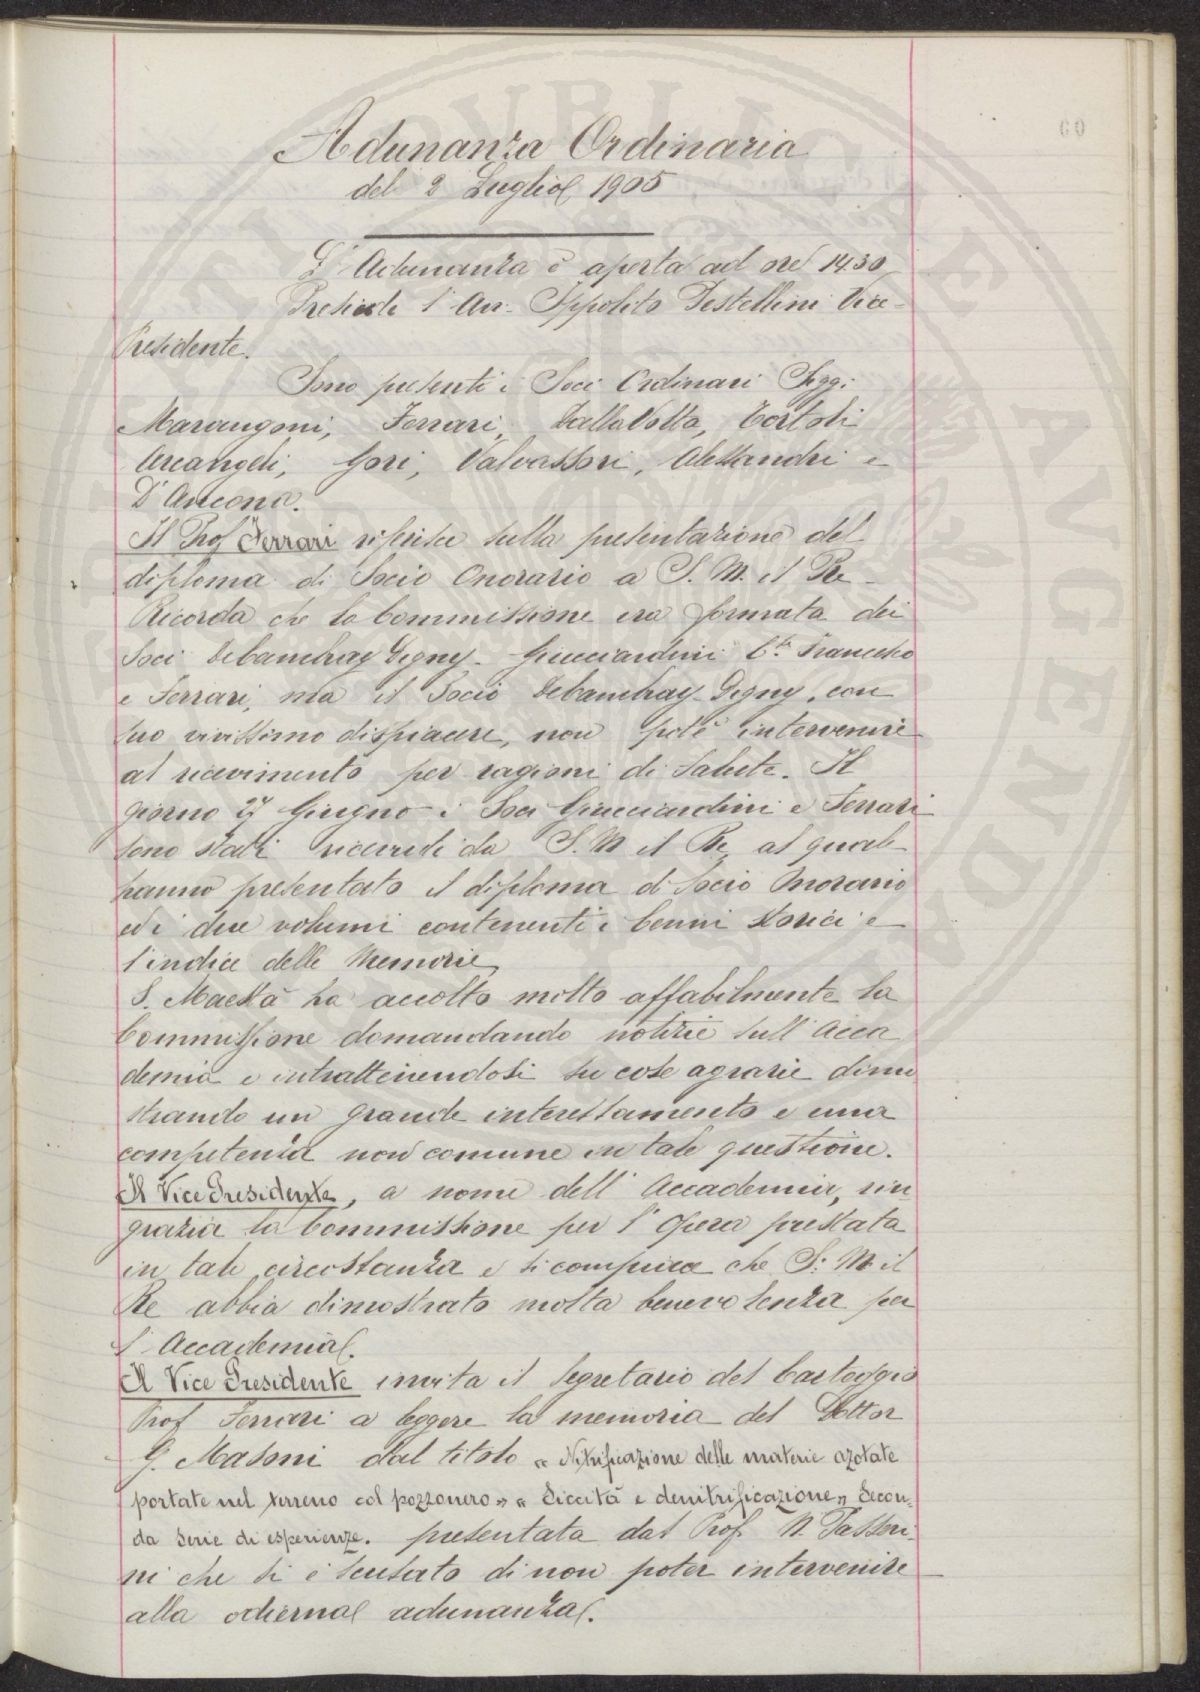 Adunanza Ordinaria
del 2 Luglio 1905
L'Adunanza è aperta ad ore 14.30
Presiede l'Avv. Ippolito Pestellini Vice-
Presidente.
Sono presenti i Soci Ordinari Sigg:
Marangoni, Ferrari, Dalla Volta, Bertoli
Arcangeli, Gori, Valvassori, Alessandri e
D'Ancona.
Il Prof Ferrari riferisce sulla presentazione del
diploma di Socio Onorario a S. M. il Re -
Ricorda che la Commissione era formata dei
Soci DeCambray Digny - Guicciardini C.te Francesco
e Ferrari, ma il Socio DeCambray-Digny, con
suo vivissimo dispiacere, non potè intervenire
al ricevimento per ragioni di salute. Il
giorno 27 Giugno i Soci Guicciardini e Ferrari
sono stati ricevuti da S. M il Re, al quale
hanno presentato il diploma di Socio Onorario
ed i due volumi contenenti i Cenni Storici e
l'indice delle Memorie,
S. Maestà ha accolto molto affabilmente la
Commissione domandando notizie sull'Acca
demia e intrattenendosi su cose agrarie dimo
strando un grande interessamento e una
competenza non comune in tale questione.
Il Vice Presidente, a nome dell'Accademia, rin
grazia la Commissione per l'opera prestata
in tale circostanza e si compiace che S: M il
Re abbia dimostrato molta benevolenza per
l'Accademia.
Il Vice Presidente invita il Segretario del Carteggio
Prof Ferrari a leggere la memoria del Dottor
G. Masoni dal titolo « Nitrificazione delle materie azotate
portate nel terreno col pozzonero » « Siccità e denitrificazione » Secon-
da Serie di esperienze. presentata dal Prof. N. Passeri-
ni che si è scusato di non poter intervenire
alla odierna adunanza.